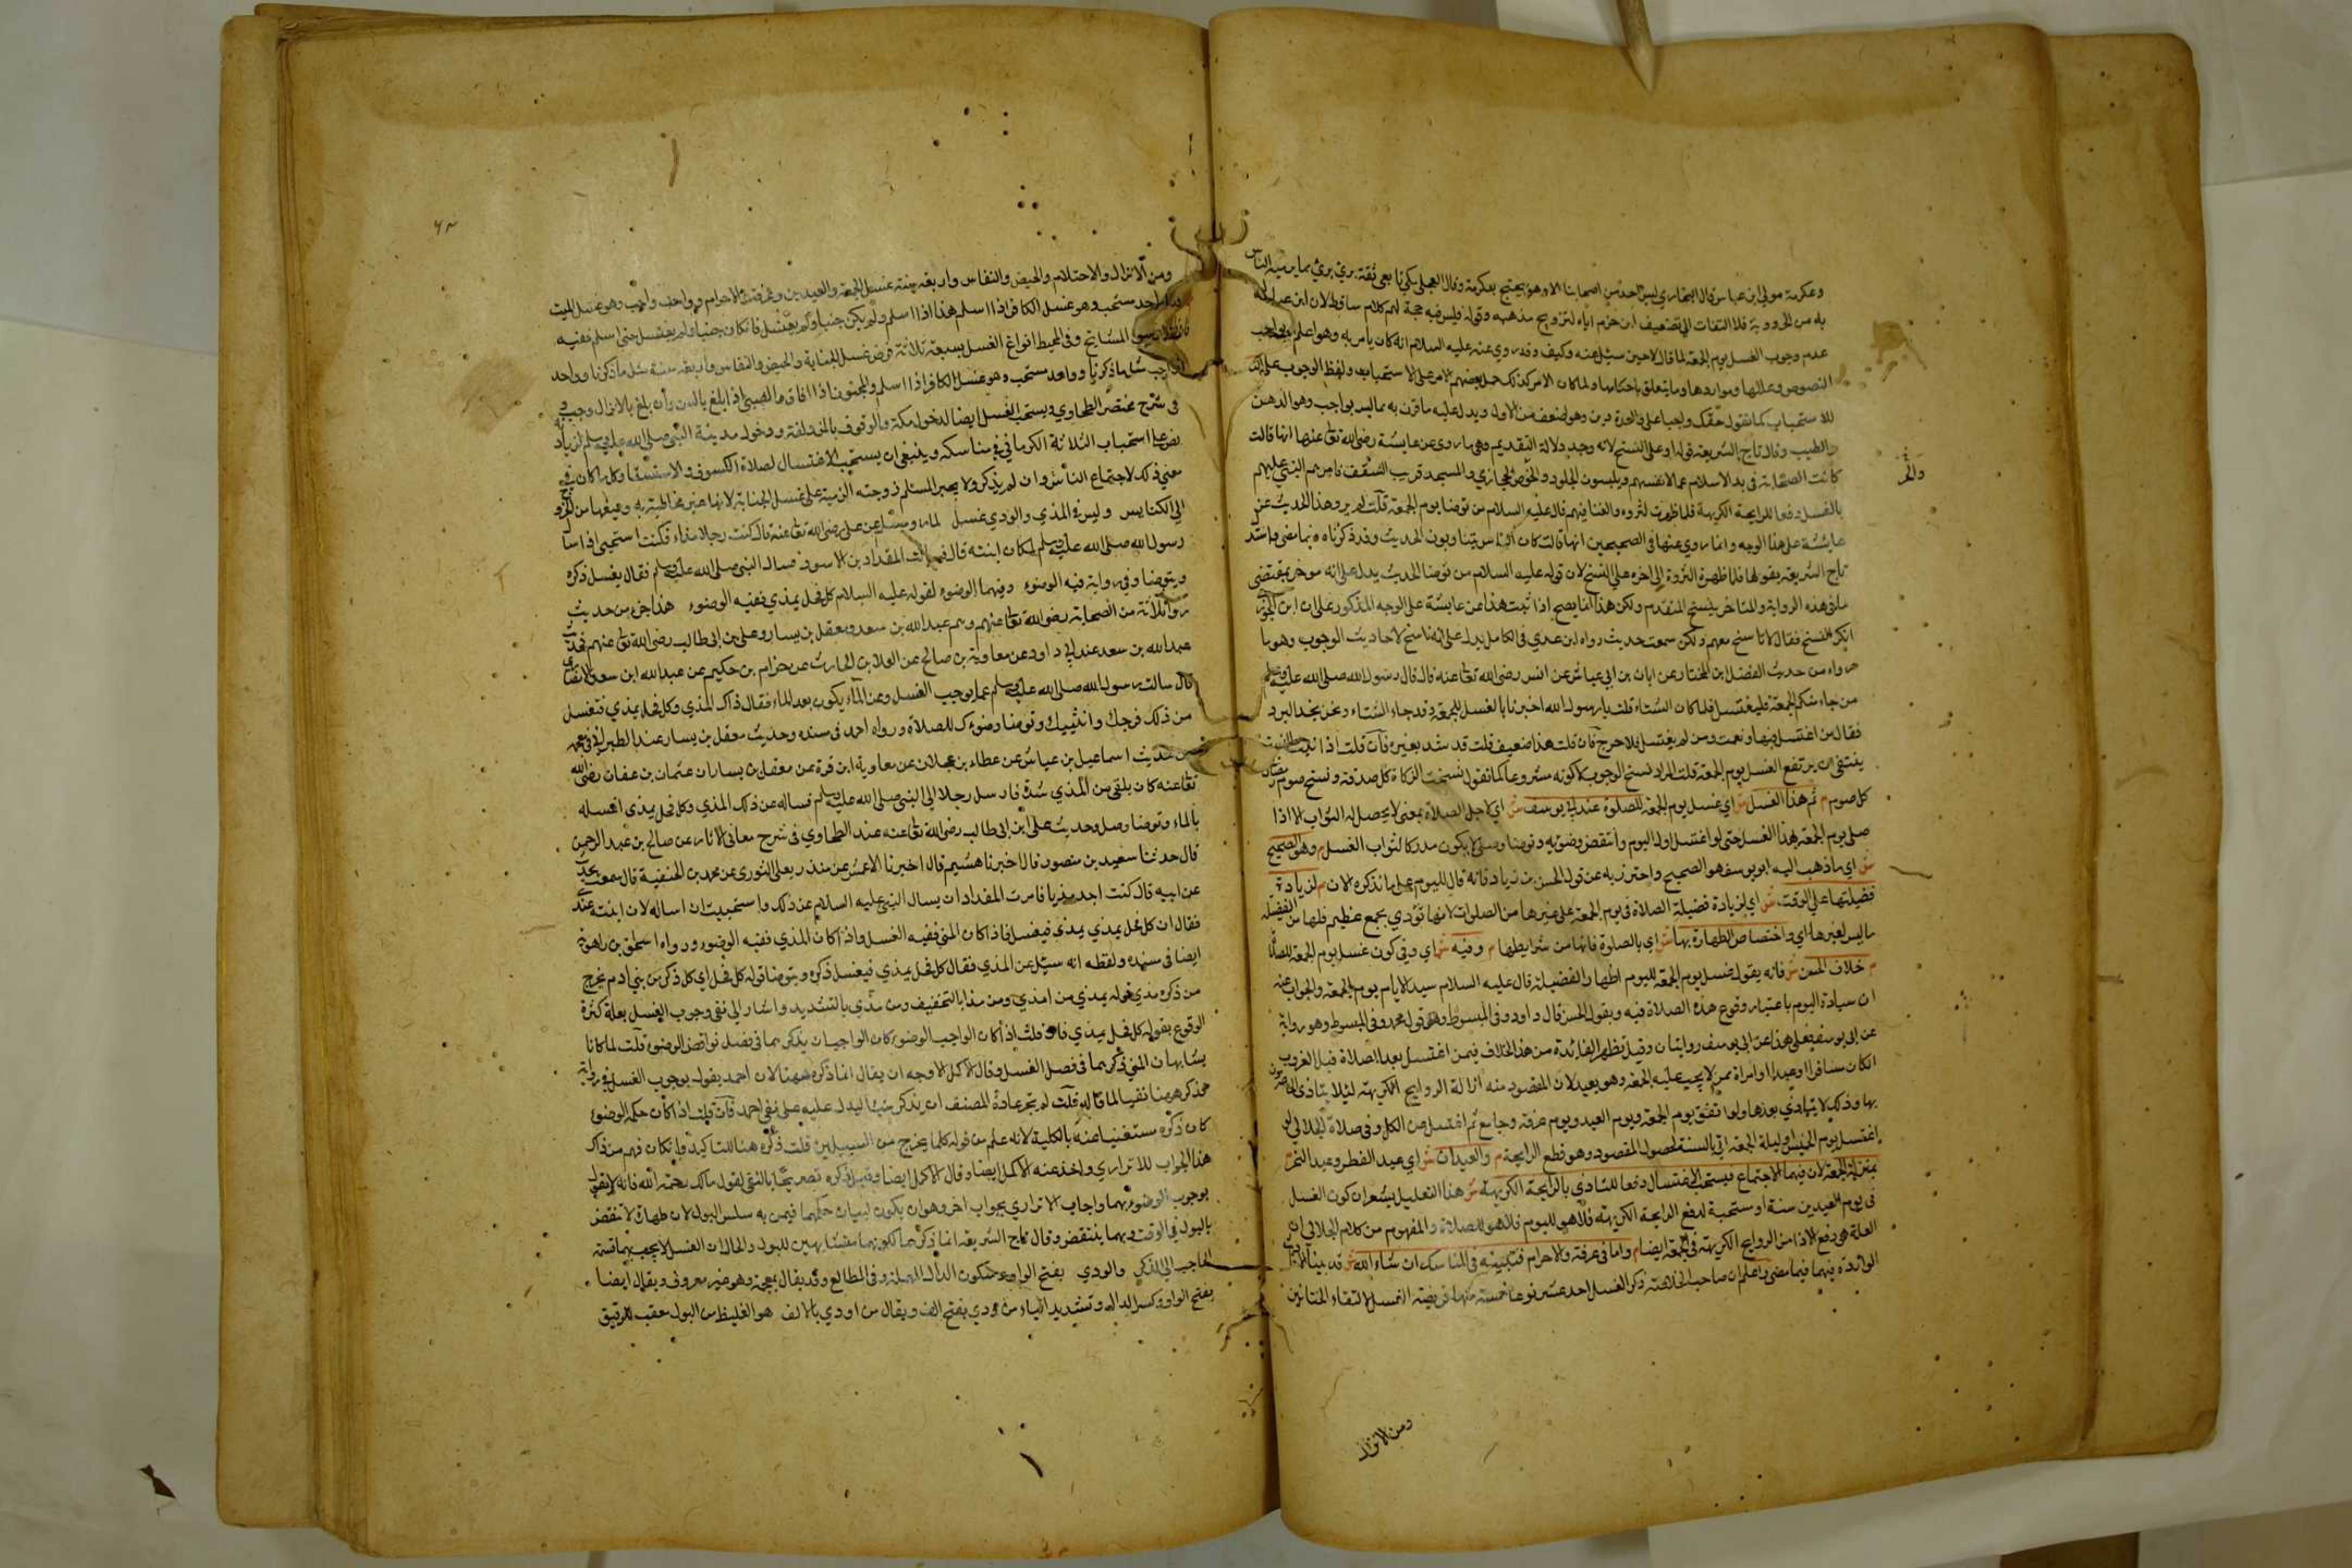 وعكرمة مولى ابن عباس قال البخاري ليس احد من اصحابنا الا وهو يحتج بعكرمة وقال العجلي مكي تابعي ثقة بريء مما يرميه الناس
به من الحرورية فلا التفات الى تضعيف ابن حزم اياه لترويج مذهبه وقوله فليس فيه حجة لهم كلام ساقط لان ابن عباس
عدم وجوب الغسل يوم الجمعة لما قال لا حين سئل عنه وكيف وقد روي عنه عليه السلام انه كان يأمر به وهو اعلم
النصوص وعللها ومواردها وما يتعلق باحكامها ولما كان الامر كذلك حمل بعضهم الامر على الاستحباب ولفظ الوجوب على
للاستحباب كما تقول حقك واجب علي ويدل عليه ما قرن به مما ليس بواجب وهو الدهن
والطيب وقال تاج الشريعة قوله او على النسخ لانه وجد دلالة التقديم وهي ما روى عن عايشة رضي الله تعالى عنها انها قالت
كانت الصحابة في بدء الاسلام عمال انفسهم ويلبسون الجلود والمسجد قريب السقف فامرهم النبي عليه
والفر
بالغسل دفعا للرايحة الكريهة فلما ظهرت الثروة قال عليه السلام من توضا يوم الجمعة قلت لم يرو هذا الحديث عن
عايشة على هذا الوجه وانما روي عنها في الصحيحين انها قالت كان الناس ينتابون الحديث وقد ذكرناه فيما مضى واستدل
تاج الشريعة بقولها فلما ظهرت الثروة الى اخره على النسخ لان قوله عليه السلام من توضا الحديث يدل على انه موخر بمقتضى
ما في هذه الرواية والمتاخر ينسخ المتقدم ولكن هذا انما يصح اذا ثبت هذا عن عايشة على الوجه المذكور على ان ابن الجوزي
انكر النسخ فقال لا ناسخ معهم ولكن سمعت حديث رواه ابن عدي في الكامل يدل على انه ناسخ لاحاديث الوجوب وهو ما
رواه من حديث الفضل بن المختار عن ابان بن ابي عياش عن انس رضي الله تعالى عنه قال قال رسول الله صلى الله عليه وسلم
من جاء منكم الجمعة فليغتسل فلما كان الشتاء قلت يارسول الله اخبرنا بالغسل للجمعة وقد جاء الشتاء ونحن نجد البرد
فقال من اغتسل فبها ونعمت ومن لم يغتسل فلا حرج فان قلت هذا ضعيف قلت قد شد بغيره فان قلت اذا ثبت النسخ
ينبغي ان يرتفع الغسل يوم الجمعة قلت المراد نسخ الوجوب لا كونه مشروعا كما تقول نسخت الزكاة كل صدقة ونسخ صوم رمضان
كل صوم م ثم هذا الغسل ش اي غسل يوم الجمعة للصلوة عند ابي يوسف ش اي لاجل الصلاة بمعنى لا يحصل له الثواب الا اذا
صلى يوم الجمعة بهذا الغسل حتى لو اغتسل اول اليوم وانتقض وضوئه وتوضا وصلى لا يكون مدركا لثواب الغسل م وهو الصحيح
ش اي ما ذهب اليه ابو يوسف هو الصحيح واحترز به عن قول الحسن بن زياد فانه قال لليوم على ما نذكره لان م لزيادة
فضيلتها على الوقت ش اي لزيادة فضيلة الصلاة في يوم الجمعة على غيرها من الصلوات لانها تؤدي بجمع عظيم فلها من الفضيلة
ما ليس لغيرها اي واختصاص الطهارة بها ش اي بالصلوة فانها من شرايطها م وفيه ش اي وفي كون غسل يوم الجمعة للصلاة
م خلاف الحسن ش فانه يقول غسل يوم الجمعة لليوم اظهارا لفضيلته قال عليه السلام سيد الايام يوم الجمعة والجواب عنه
ان سيادة اليوم باعتبار وقوع هذه الصلاة فيه وبقول الحسن قال داود وفي المبسوط وهو قول محمد وفي المبسوط وهو رواية
عن ابي يوسف فعلى هذا عن ابي يوسف روايتان وقيل تظهر الفائدة من هذا الخلاف فيمن اغتسل بعد الصلاة قبل الغروب
ان كان مسافرا او عبدا او امراة ممن لا يجب عليه الجمعة وهو بعيد لان المقصود منه ازالة الروايح الكريهة لئلا يتاذى الحاضرون
بها وذلك لا يتادي بعدها ولو اتفق يوم الجمعة ويوم العيد ويوم عرفة وجامع ثم اغتسل عن الكل وفي صلاة الجلابي لو
اغتسل يوم الخميس او ليلة الجمعة اتى بالسنة لحصول المقصود وهو قطع الرايحة م والعيدان ش اي عيد الفطر وعيد النحر
بمنزلة الجمعة لان فيهما الاجتماع فيستحب الاغتسال دفعا للتاذي بالرايحة الكريهة ش هذا التعليل يشعر ان كون الغسل
في يوم العيدين سنة او مستحبة لدفع الرايحة الكريهة فلا هو لليوم فلا هو للصلاة والمفهوم من كلام الجلابي ان
العلة هي دفع الاذا من الروايح الكريهة في الجمعة ايضا م واما في عرفة والاحرام فنبينه في المناسك ان شاء الله ش قد بينا
الواردة فيهما فيما مضى واعلم ان صاحب الخلاصة ذكر الغسل احد عشر نوعا خمسة منها فريضة الغسل لالتقاء الختانين
ومن الانزال
٩٣
ومن الانزال والاحتلام والحيض والنفاس واربعة سنة غسل الجمعة والعيدين وعرفة والاحرام وواحد واجب وهو غسل الميت
وواحد مستحب وهو غسل الكافر اذا اسلم هذا اذا اسلم ولم يكن جنبا ولم يغتسل فان كان جنبا ولم يغتسل حتى اسلم ففيه
المشايخ وفي المحيط انواع الغسل تسعة ثلاثة فرض غسل الجنابة والحيض والنفاس واربعة سنة مثل ما ذكرنا وواحد
واجب مثل ما ذكرنا وواحد مستحب وهو غسل الكافر اذا اسلم والمجنون اذا افاق والصبي اذا بلغ بالسن وان بلغ بالانزال وجب
في شرح مختصر الطحاوي ويستحب الغسل ايضا لدخول مكة والوقوف بالمزدلفة ودخول مدينة النبي صلى الله عليه وسلم
نص على استحباب الثلاثة الكرماني في مناسكه وينبغي ان يستحب الاغتسال لصلاة الكسوف والاستسقا وكل ما كان في
معنى ذلك لاجتماع الناس وان لم يذكر ولا يجبر المسلم زوجته الذمية على غسل الجنابة لانها غير مخاطبة به ويمنعها من الخروج
الى الكنايس وليس في المذي والودي غسل لما روي عن علي رضي الله تعالى عنه قال كنت رجلا مذاء فكنت استحيي اذا اسال
رسول الله صلى الله عليه وسلم لمكان ابنته قال المقداد بن الاسود فسال النبي صلى الله عليه وسلم فقال يغسل ذكره
ويتوضا وفي رواية فيه الوضوء وفيهما الوضوء لقوله عليه السلام كل فحل يمذي ففيه الوضوء هذا جزء من حديث
رواه ثلاثة من الصحابة رضي الله تعالى عنهم وهم عبدالله بن سعد ومعقل بن يسار وعلي بن ابي طالب رضي الله تعالى عنهم فحديث
عبدالله بن سعد عند ابي داود عن معاوية بن صالح عن العلا بن الحارث عن حزام بن حكيم عن عبدالله ابن سعد الانصاري
قال سالت رسول الله صلى الله عليه وسلم عما يوجب الغسل وعن الماء يكون بعد الماء فقال ذاك المذي وكل فحل يمذي فتغسل
من ذلك فرجك وانثييك وتوضا وضوءك للصلاة ورواه احمد في مسنده وحديث معقل بن يسار عند الطبراني في معجمه
من حديث اسماعيل بن عياش عن عطاء بن عجلان عن معاوية ابن قرة عن معقل بن يسار ان عثمان بن عفان رضي الله
تعالى عنه كان يلقى من المذي شدة فارسل رجلا الى النبي صلى الله عليه وسلم فساله عن ذلك المذي وكل فحل يمذي اغسله
بالماء وتوضا وصل وحديث علي ابن ابي طالب رضي الله تعالى عنه عند الطحاوي في شرح معاني الاثار عن صالح بن عبد الرحمن
قال حدثنا سعيد بن منصور قال اخبرنا هشيم قال اخبرنا الاعمش عن منذر يعلى الثوري عن محمد بن الحنفية قال سمعت يحدث
عن ابيه قال كنت اجد مذيا فامرت المقداد ان يسال النبي عليه السلام عن ذلك واستحييت ان اساله لان ابنته عندي
فقال ان كل فحل يمذي يمذي فيغسل فاذا كان المني ففيه الغسل واذا كان المذي ففيه الوضوء ورواه اسحق بن راهويه
ايضا في مسنده ولفظه انه سئل عن المذي فقال كل فحل يمذي فيغسل ذكره ويتوضا قوله كل فحل اي كل ذكر من بني ادم يخرج
من ذكره مذي قوله يمذي من امذي ومن مذا بالتخفيف ومن مذي بالتشديد واشار الى نفي وجوب الغسل بعلة كثرة
الوقوع بقوله كل فحل يمذي فان قلت اذا كان الواجب الوضوء كان الواجب ان يذكرهما في فصل نواقض الوضوء قلت لما كانا
يشابهان المني ذكرهما في فصل الغسل وقال الاكمل الاوجه ان يقال انما ذكره ههنا لان احمد يقول بوجوب الغسل في رواية
فذكر ههنا نفيا لما قاله قلت لم تجر عادة المصنف ان يذكر شيئا ليدل عليه على نفي احمد فان قلت اذا كان حكمه الوضوء
كان ذكره مستغنيا عنه بالكلية لانه علم من قوله كلما يخرج من السبيلين قلت ذكره هنا للتاكيد وان كان فهم من ذاك
هذا الجواب للاتراري واخذ عنه الاكمل ايضا وقال الاكمل ايضا وقيل ذكره تصريحا بالنفي لقول مالك رحمة الله فانه لا يقول
بوجوب الوضوء بهما واجاب الاتراري بجواب اخر وهو ان يكون لبيان حكمهما فيمن به سلس البول لان طهارته لا تنقض
بالبول في الوقت وبهما ينتقض وقال تاج الشريعة انما ذكرهما لكونهما مشابهين للبول والحال ان الغسل لا يجب بهما
والودي بفتح الواو وسكون الدال المهملة وفي المطالع وقد يقال بمعجمة وهو غير معروف ويقال ايضا
بفتح الواو وكسر الدال وتشديد الياء من ودي بفتح الف ويقال من اودي بالالف هو الغليظ من البول معقب للرقيق